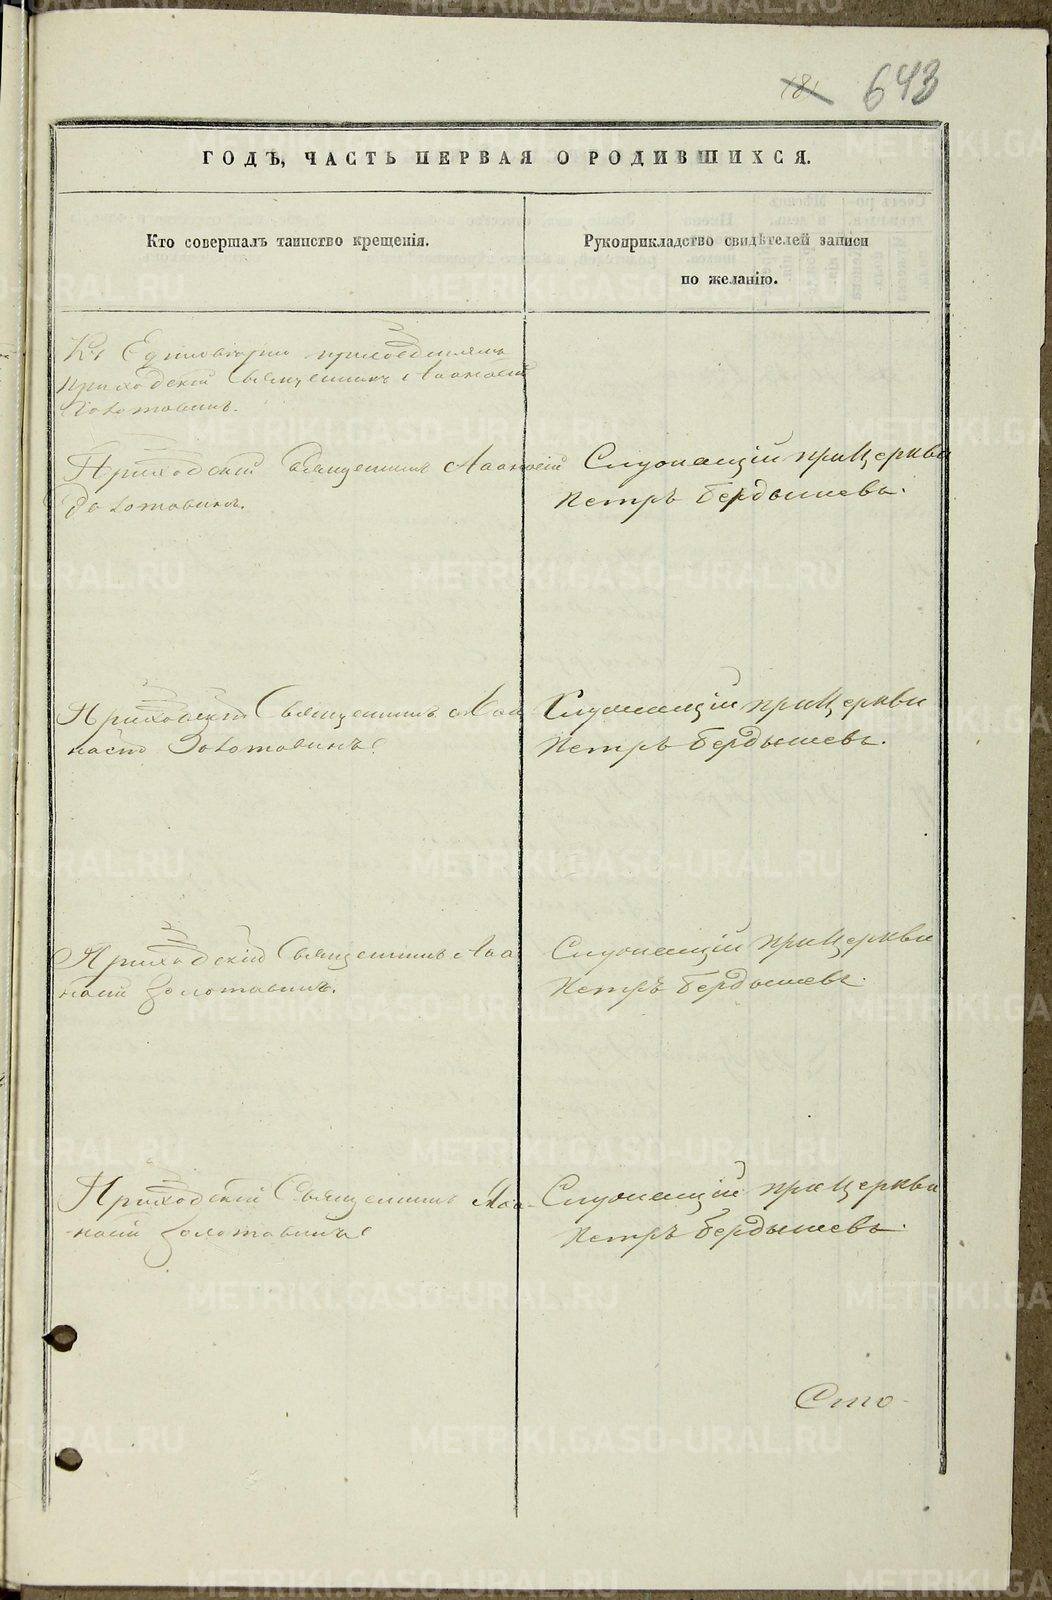 181 643
ГОДЪ, ЧАСТЬ ПЕРВАЯ О РОДИВШИХСЯ.
Кто совершалъ таинство крещенія.
Рукоприкладство свидѣтелей записи
по желанію.
Къ Единовѣрію присоединялъ
приходскій Священникъ Аѳанасій
Золотавинъ.
Приходскій Священникъ Аѳанасій
Золотавинъ.
Служащій при Церкви
Петръ Бердышевъ.
Приходскій Священникъ Аѳа
насій Золотавинъ
Служащій при Церкви
Петръ Бердышевъ.
Приходскій Священникъ Аѳа
насій Золотавинъ.
Служащій при Церкви
Петръ Бердышевъ.
Приходскій Священникъ Аѳа-
насій Золотавинъ
Служащій при Церкви
Петръ Бердышевъ.
Сто-
METRIKI.GASO-URAL.RU